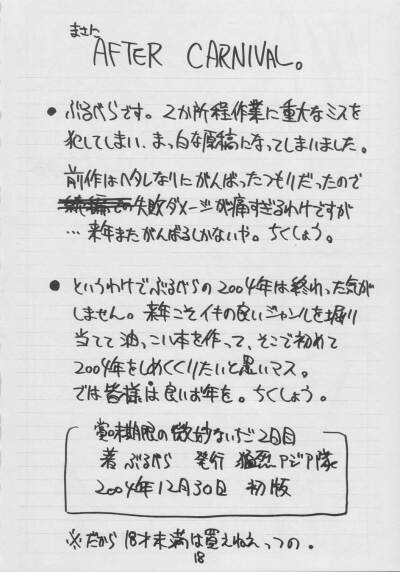 まさに
AFTER CARNIVAL。
● ぶるべらです。2か所程作業に重大なミスを
犯してしまい、まっ白な原稿になってしまいました。
前作はヘタレなりにがんばったつもりだったので
失敗ダメージが痛すぎるわけですが
…来年またがんばるしかないや。ちくしょう。
● というわけでぶるべらの2004年は終わった気が
しません。来年こそイキの良いジャンルを堀り
当てて油っこい本を作って、そこで初めて
2004年をしめくくりたいと思いマス。
では皆様は良いお年を。ちくしょう。
賞味期限の微妙ないちご2日目
著 ぶるべら 発行 猛烈アジア隊
2004年12月30日 初版
※だから18才未満は買えねえっての。
18